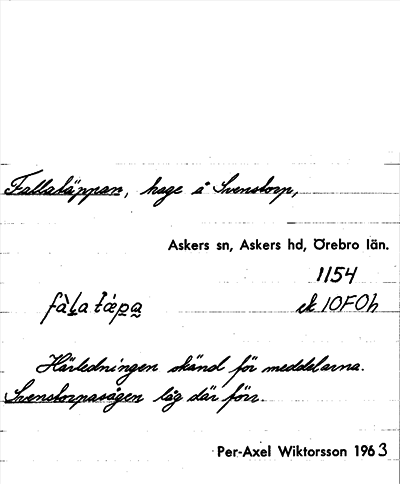 Fallatäppan, hage å Svenstorp,
Askers sn, Askers hd, Örebro län.
1154
fàl̠a tápa̰ ek 10F0h
Härledningen okänd för meddelarna.
Svenstorpasågen låg där förr.
Per-Axel Wiktorsson 1963